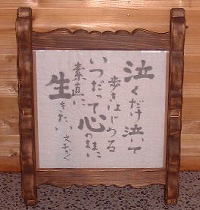 泣くだけ泣いて
歩きはじめる
いつだって心のままに
素直に
生きたい